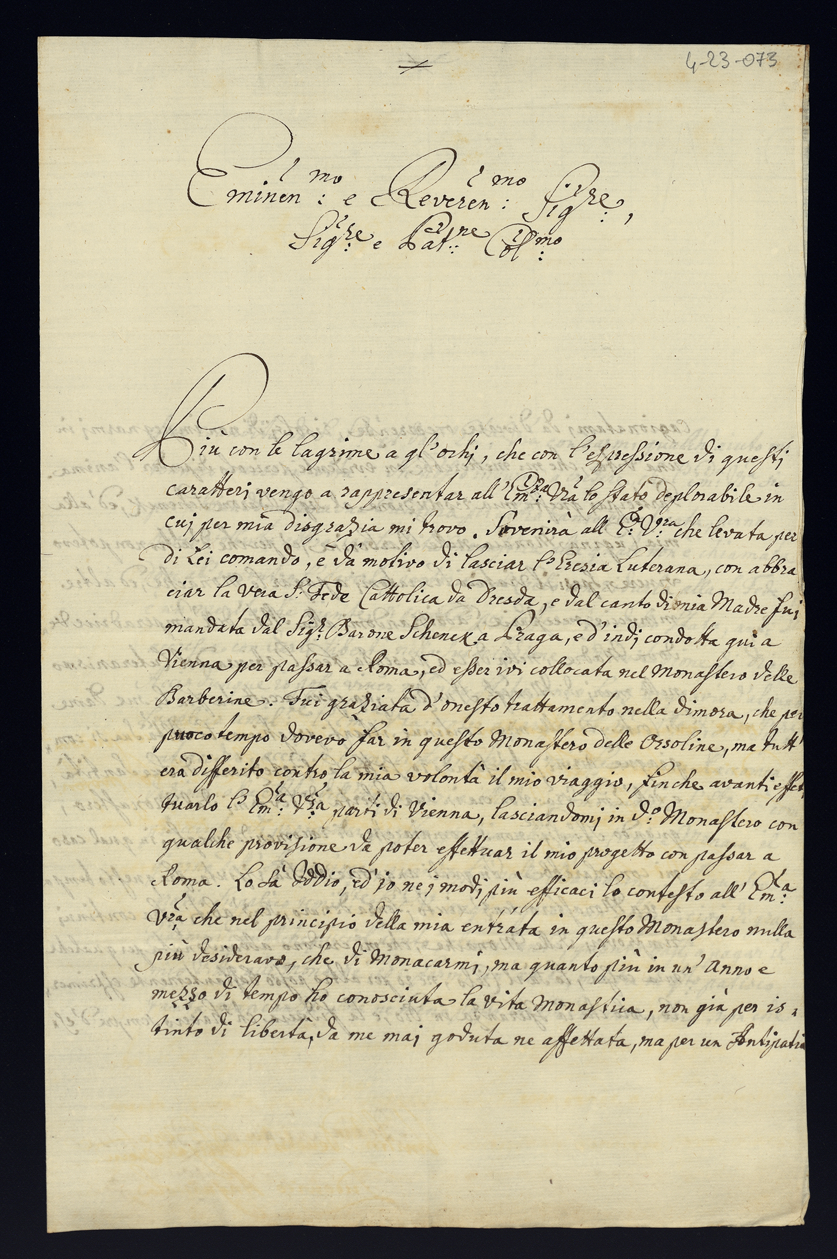 4-23-073
Eminen:mo e Reveren:mo Sig:re,
Sig:re e Pat:ne Col:mo
Più con le lagrime a gl'ochj, che con l'espressione di questi
caratterj vengo a rappresentar all'Em:za Vra lo stato deplorabile in
cuj per mia disgrazia mi trovo. Sovenirà all'E:za V:ra che levata per
di Lei comando, e dà motivo di lasciar l'Eresia Luterana, con abbra
ciar la vera S: Fede Cattolica da Dresda, e dal canto di mia Madre fuj
mandata dal Sig:r Barone Schenck a Praga, e d'indj condotta quì a
Vienna per passar a Roma, ed esser ivi collocata nel Monastero delle
Barberine. Fui graziata d'onesto trattamento nella dimora, che per
puoco tempo dovevo far in questo Monastero delle Orsoline, ma tutt'
era differito contro la mia volontà il mio viaggio, finche avanti effet
tuarlo l'Em:za Vra partì di Vienna, lasciandomj in d:o Monastero con
qualche provisione da poter effettuar il mio progetto con passar a
Roma. Lo sà Iddio, ed'jo nej modj più efficaci lo contesto all'Em:za
Vra che nel principio della mia entrata in questo Monastero nulla
più desideravo, che di Monacarmj, ma quanto più in un'Anno e
mezzo di tempo ho conosciuta la vita Monastica, non già per is=
tinto di libertà, da me maj goduta ne affettata, ma per un Antipatia